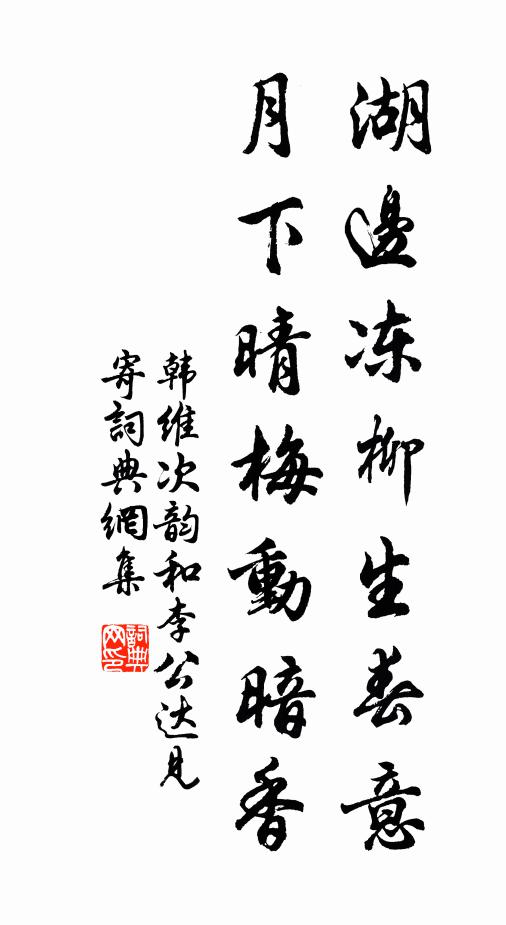 湖邊冻柳生春意
月下晴梅動暗香
韩维次韵和李公达見
寄詞典網集
詞典
网印